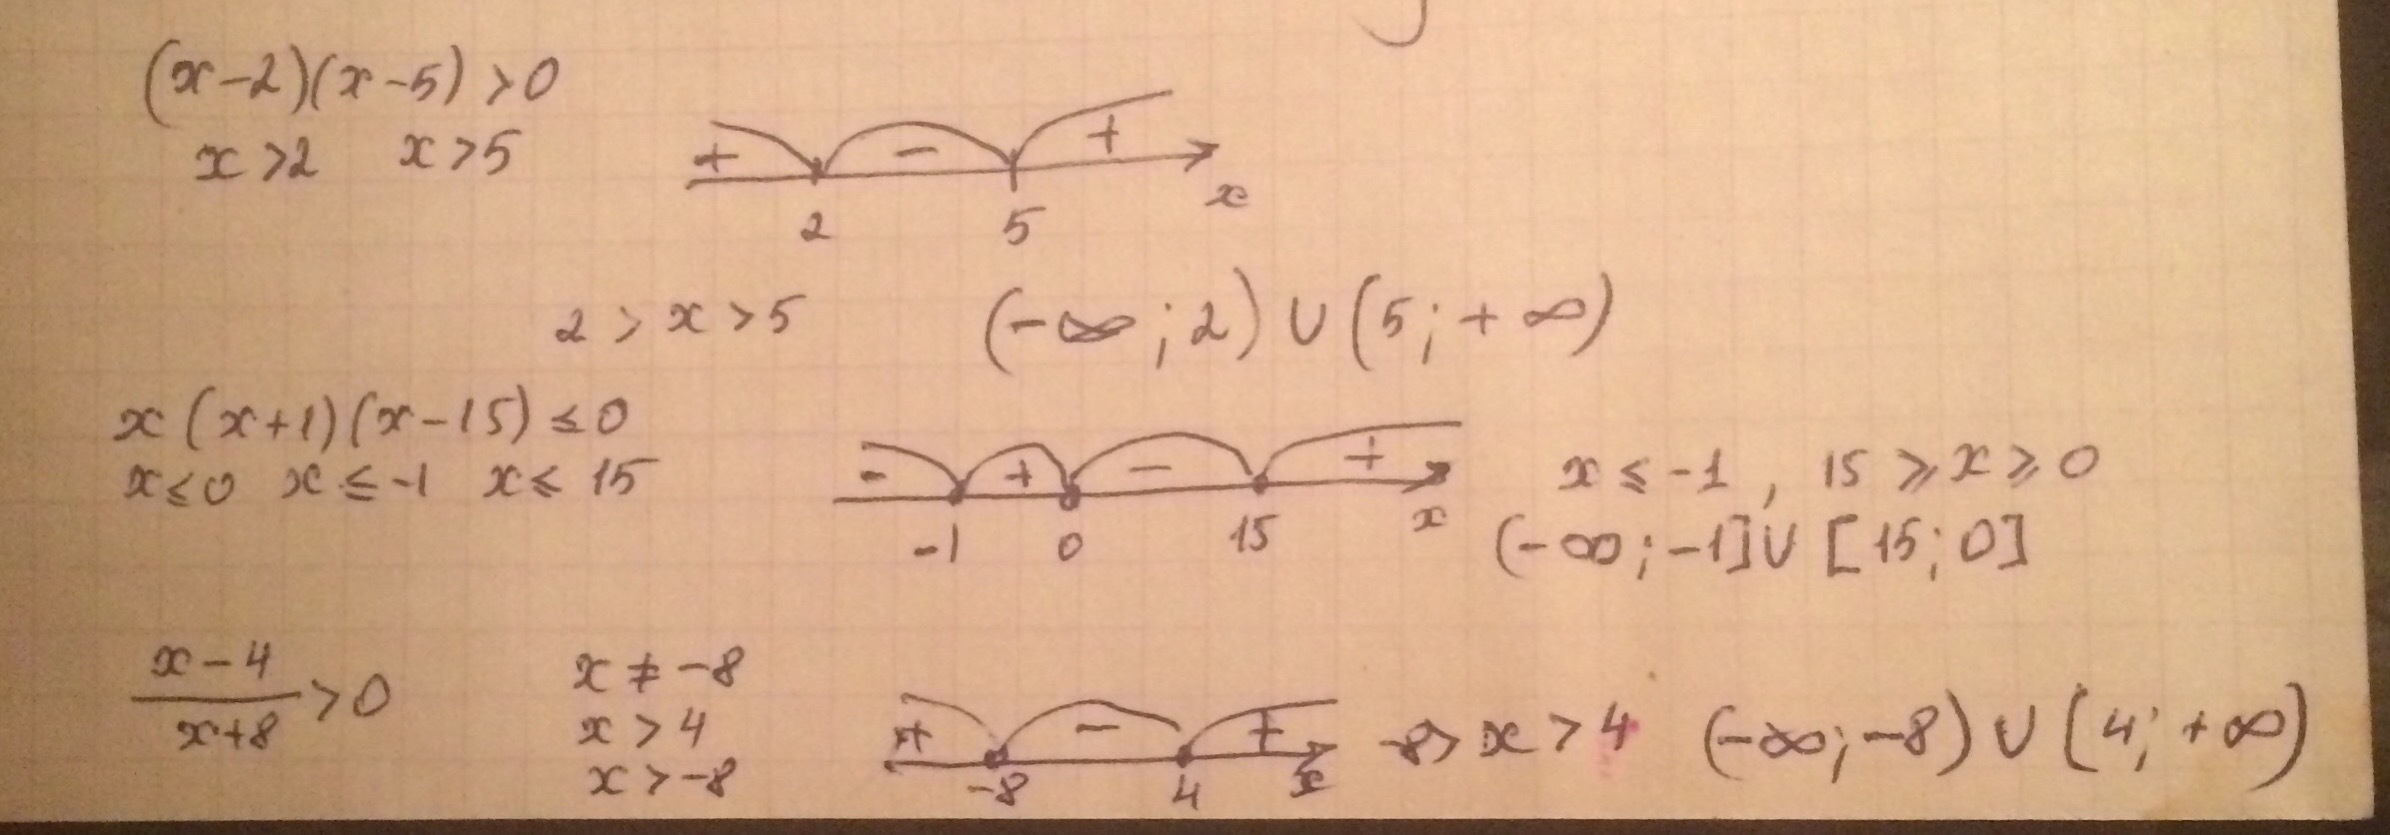 (x-2)(x-5) >0
x>2 x>5
+ - +
2 5 x
2 > x > 5 (-∞; 2) ∪ (5; +∞)
x (x+1)(x-15) ≤ 0
x≤0 x≤-1 x≤ 15
- + - +
-1 0 15 x
x ≤ -1 , 15 ≥ x ≥ 0
(-∞; -1] ∪ [15; 0]
x-4
x+8
>0
x ≠ -8
x > 4
x > -8
+ - +
-8 4 x
-8> x > 4 (-∞; -8) ∪ (4; +∞)